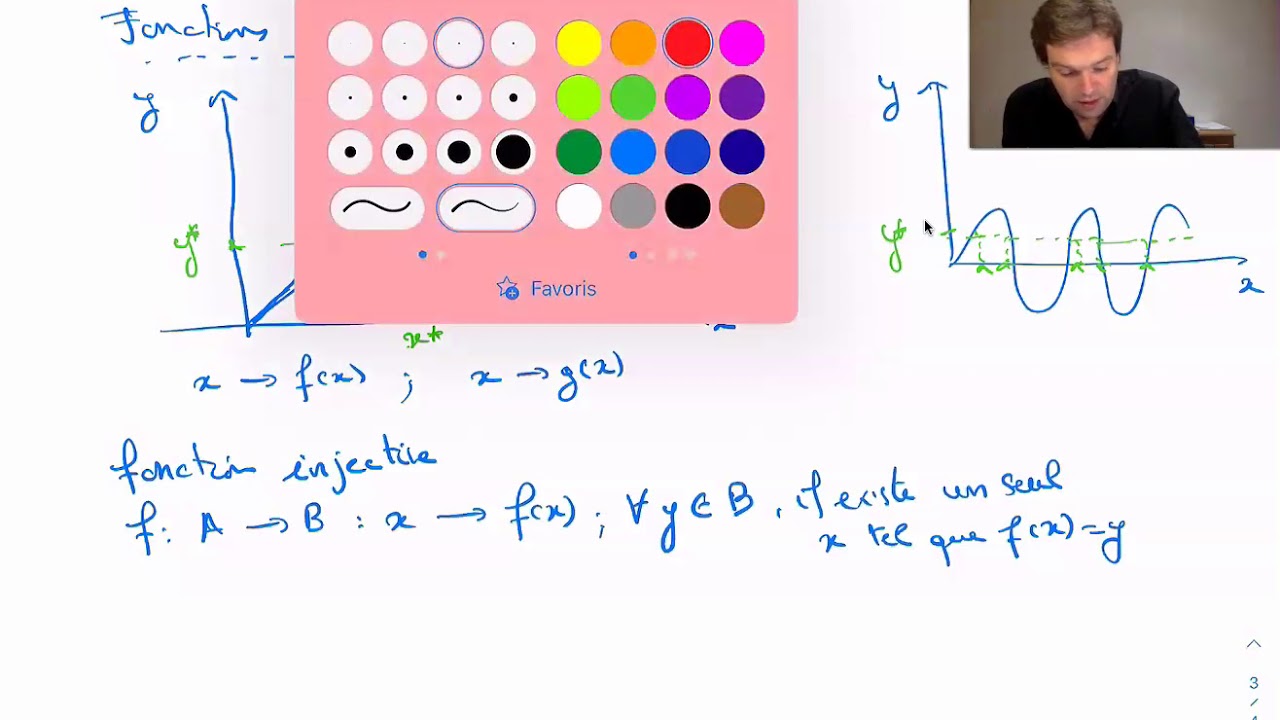 Fonctions
y
y
y*
y*
x
x*
Favoris
x → f(x) ; x → g(x)
fonction injective
f: A → B : x → f(x) ; ∀ y ∈ B , il existe un seul
x tel que f(x) = y
3
/